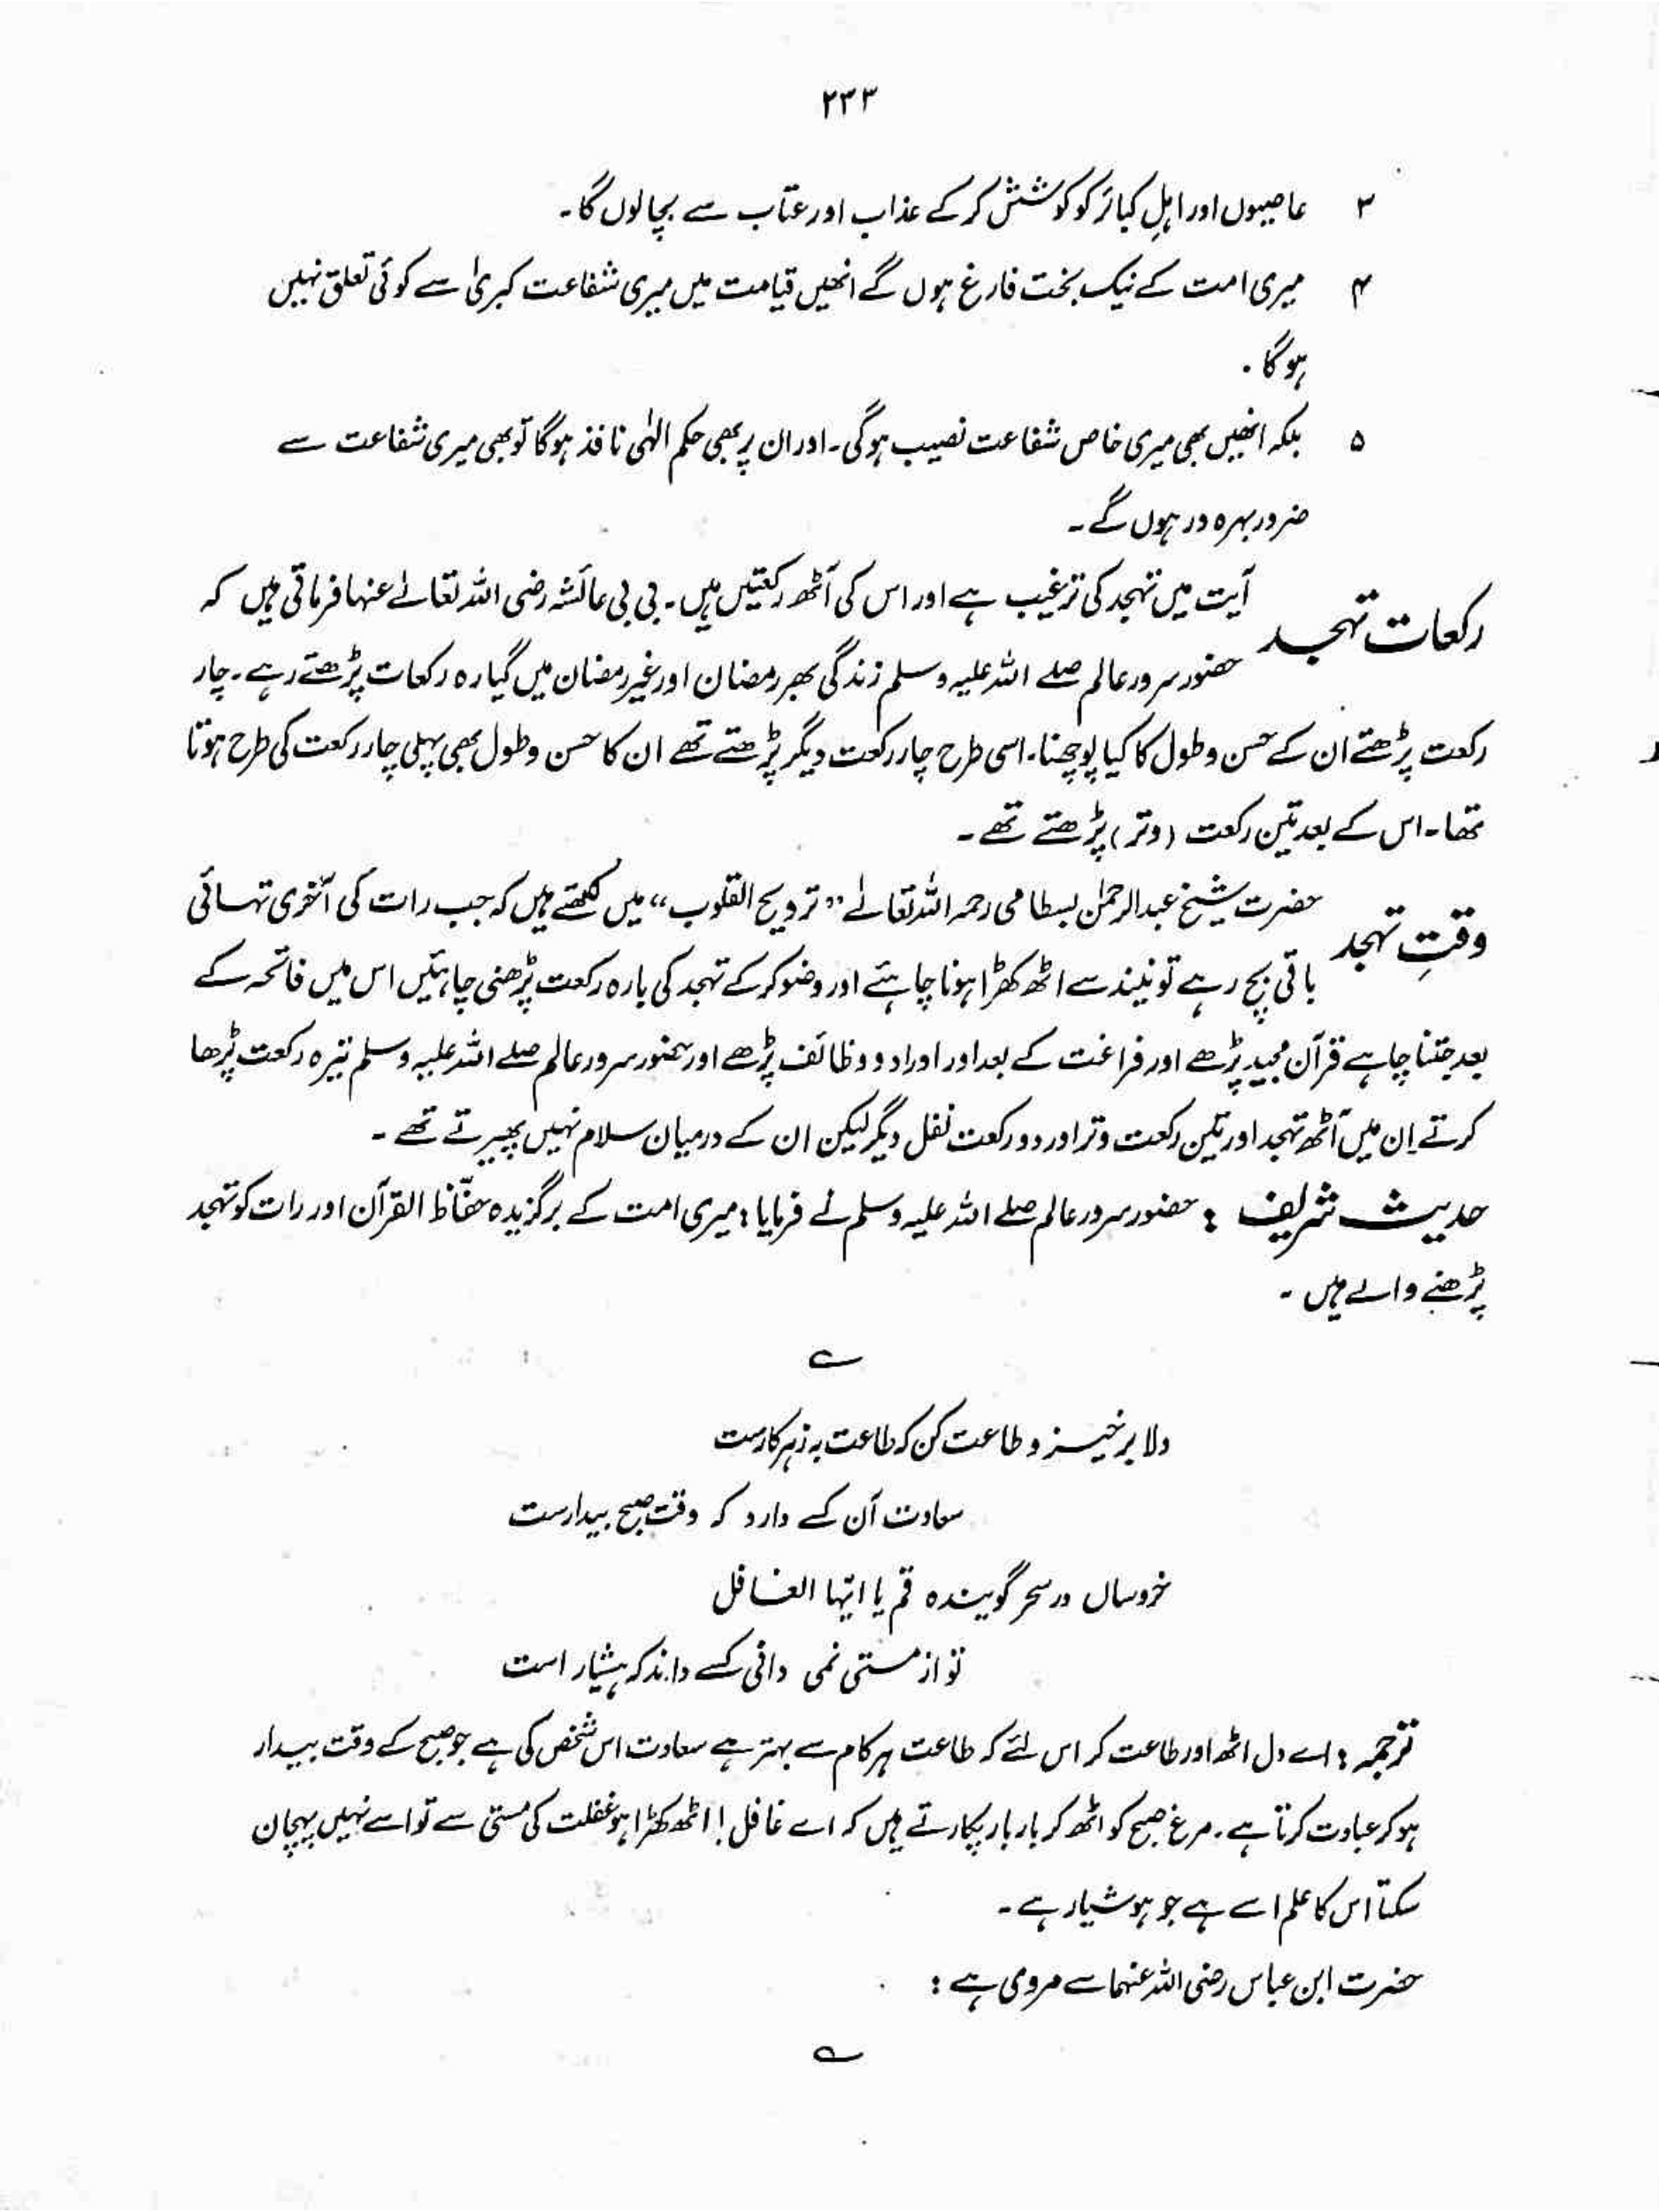 ۲۳۳
۳ عاصیوں اور اہلِ کبائر کو کوشش کر کے عذاب اور عتاب سے بچا لوں گا۔
۴ میری امت کے نیک بخت فارغ ہوں گے انھیں قیامت میں میری شفاعت کبریٰ سے کوئی تعلق نہیں
ہوگا۔
۵ بلکہ انھیں بھی میری خاص شفاعت نصیب ہوگی۔ اور ان پر بھی حکم الٰہی نافذ ہوگا تو بھی میری شفاعت سے
ضرور بہرہ ور ہوں گے۔
رکعات تہجد
آیت میں تہجد کی ترغیب ہے اور اس کی آٹھ رکعتیں ہیں۔ بی بی عائشہ رضی اللہ تعالےٰ عنہا فرماتی ہیں کہ
حضور سرور عالم صلے اللہ علیہ وسلم زندگی بھر رمضان اور غیر رمضان میں گیارہ رکعات پڑھتے رہے۔ چار
رکعت پڑھتے ان کے حسن و طول کا کیا پوچھنا۔ اسی طرح چار رکعت دیگر پڑھتے تھے ان کا حسن و طول بھی پہلی چار رکعت کی طرح ہوتا
تھا۔ اس کے بعد تین رکعت (وتر) پڑھتے تھے۔
وقتِ تہجد
حضرت شیخ عبدالرحمٰن بسطامی رحمہ اللہ تعالےٰ "ترویح القلوب" میں لکھتے ہیں کہ جب رات کی آخری تہائی
باقی بچ رہے تو نیند سے اٹھ کھڑا ہونا چاہئے اور وضو کر کے تہجد کی بارہ رکعت پڑھنی چاہئیں اس میں فاتحہ کے
بعد جتنا چاہے قرآن مجید پڑھے اور فراغت کے بعد اور اوراد و وظائف پڑھے اور حضور سرور عالم صلے اللہ علیہ وسلم تیرہ رکعت پڑھا
کرتے اِن میں آٹھ تہجد اور تین رکعت وتر اور دو رکعت نفل دیگر لیکن ان کے درمیان سلام نہیں پھیرتے تھے۔
حدیث شریف : حضور سرور عالم صلے اللہ علیہ وسلم نے فرمایا : میری امت کے برگزیدہ حفّاظ القرآن اور رات کو تہجد
پڑھنے والے ہیں۔
؎
دلا برخیز و طاعت کن کہ طاعت بہ زہر کارست
سعادت آن کسے دارد کہ وقت صبح بیدارست
خروساں در سحر گویندہ قم یا ایّہا الغافل
تو از مستی نمی دانی کسے داند کہ ہشیار است
ترجمہ : اے دل اٹھ اور طاعت کر اس لئے کہ طاعت ہر کام سے بہتر ہے سعادت اس شخص کی ہے جو صبح کے وقت بیدار
ہو کر عبادت کرتا ہے۔ مرغ صبح کو اٹھ کر بار بار پکارتے ہیں کہ اے غافل! اٹھ کھڑا ہو غفلت کی مستی سے تو اسے نہیں پہچان
سکتا اس کا علم اسے ہے جو ہوشیار ہے۔
حضرت ابن عباس رضی اللہ عنہما سے مروی ہے :
؎